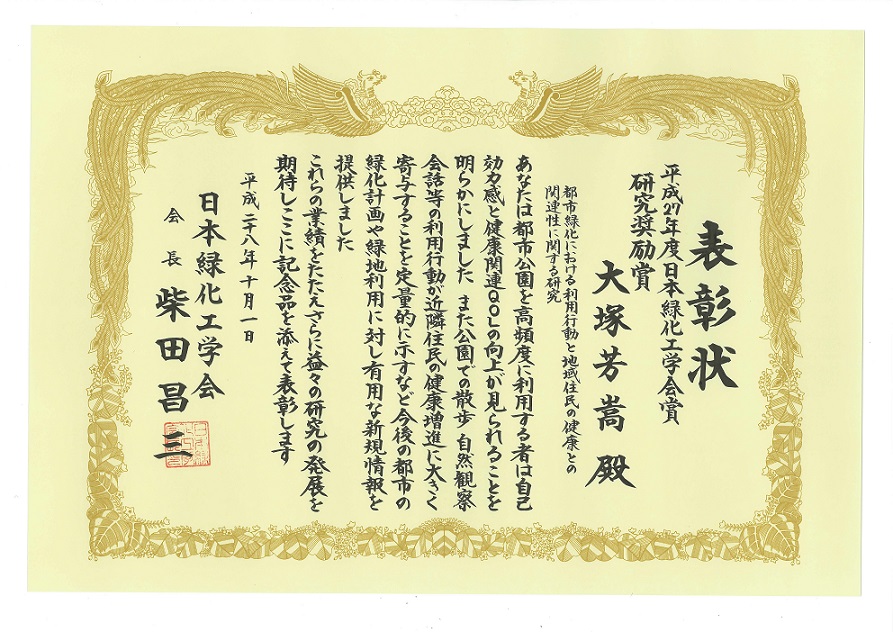 表彰状
平成27年度日本緑化工学会賞
研究奨励賞
大塚芳嵩 殿
都市緑化における利用行動と地域住民の健康との
関連性に関する研究
あなたは都市公園を高頻度に利用する者は自己
効力感と健康関連QOLの向上が見られることを
明らかにしました また公園での散歩 自然観察
会話等の利用行動が近隣住民の健康増進に大きく
寄与することを定量的に示すなど今後の都市の
緑化計画や緑地利用に対し有用な新規情報を
提供しました
これらの業績をたたえさらに益々の研究の発展を
期待しここに記念品を添えて表彰します
平成二十八年十月一日
日本緑化工学会
会長 柴田昌三